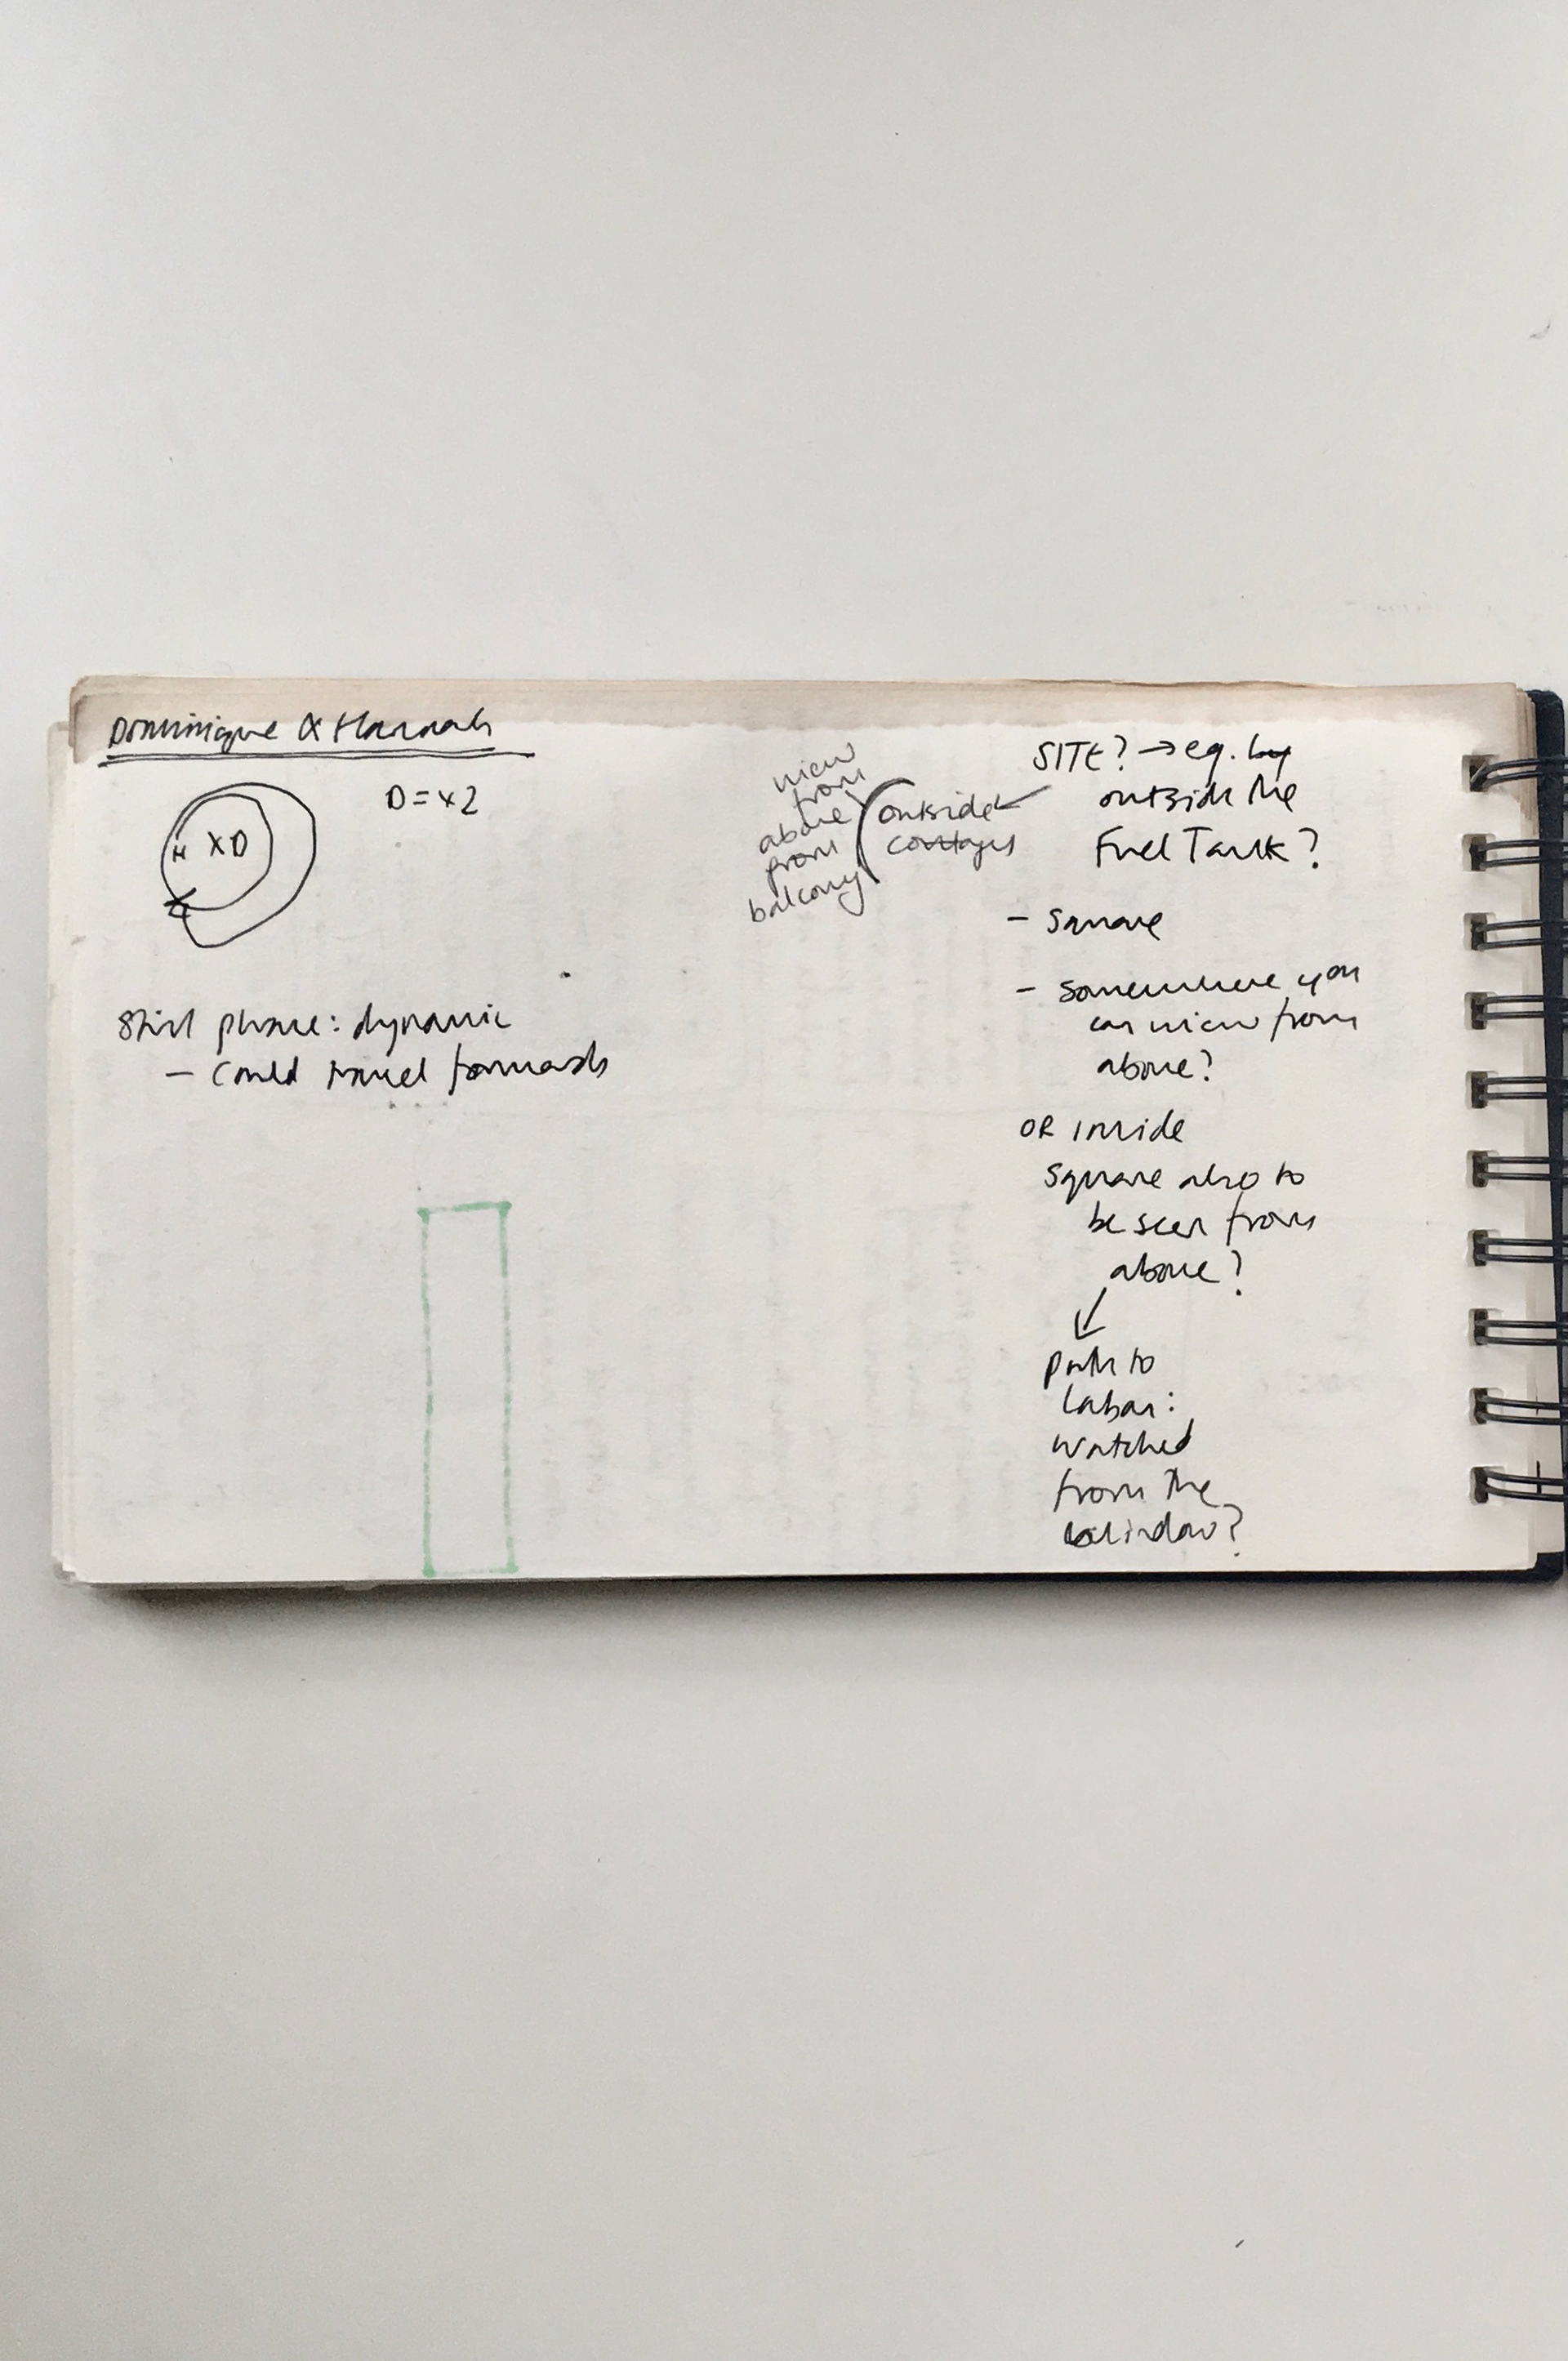 Dominique & Hannah
H XD
D = x2
phrase: dynamic
- could travel forwards
view
from
above
from
balcony
outside
cottages
SITE? → eg. by
outside the
Fuel Tank?
- Square
- somewhere you
can view from
above?
OR inside
square also to
be seen from
above?
path to
Laban:
watched
from the
window?